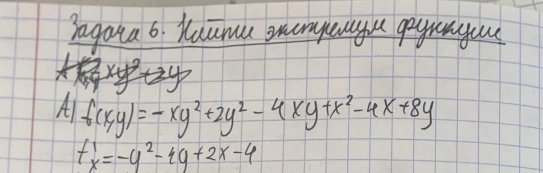 Задача 6. Найти экстремум функции
A) xy²+2y
A) f(x,y)=-xy²+2y²-4xy+x²-4x+8y
f'x=-y²-4y+2x-4